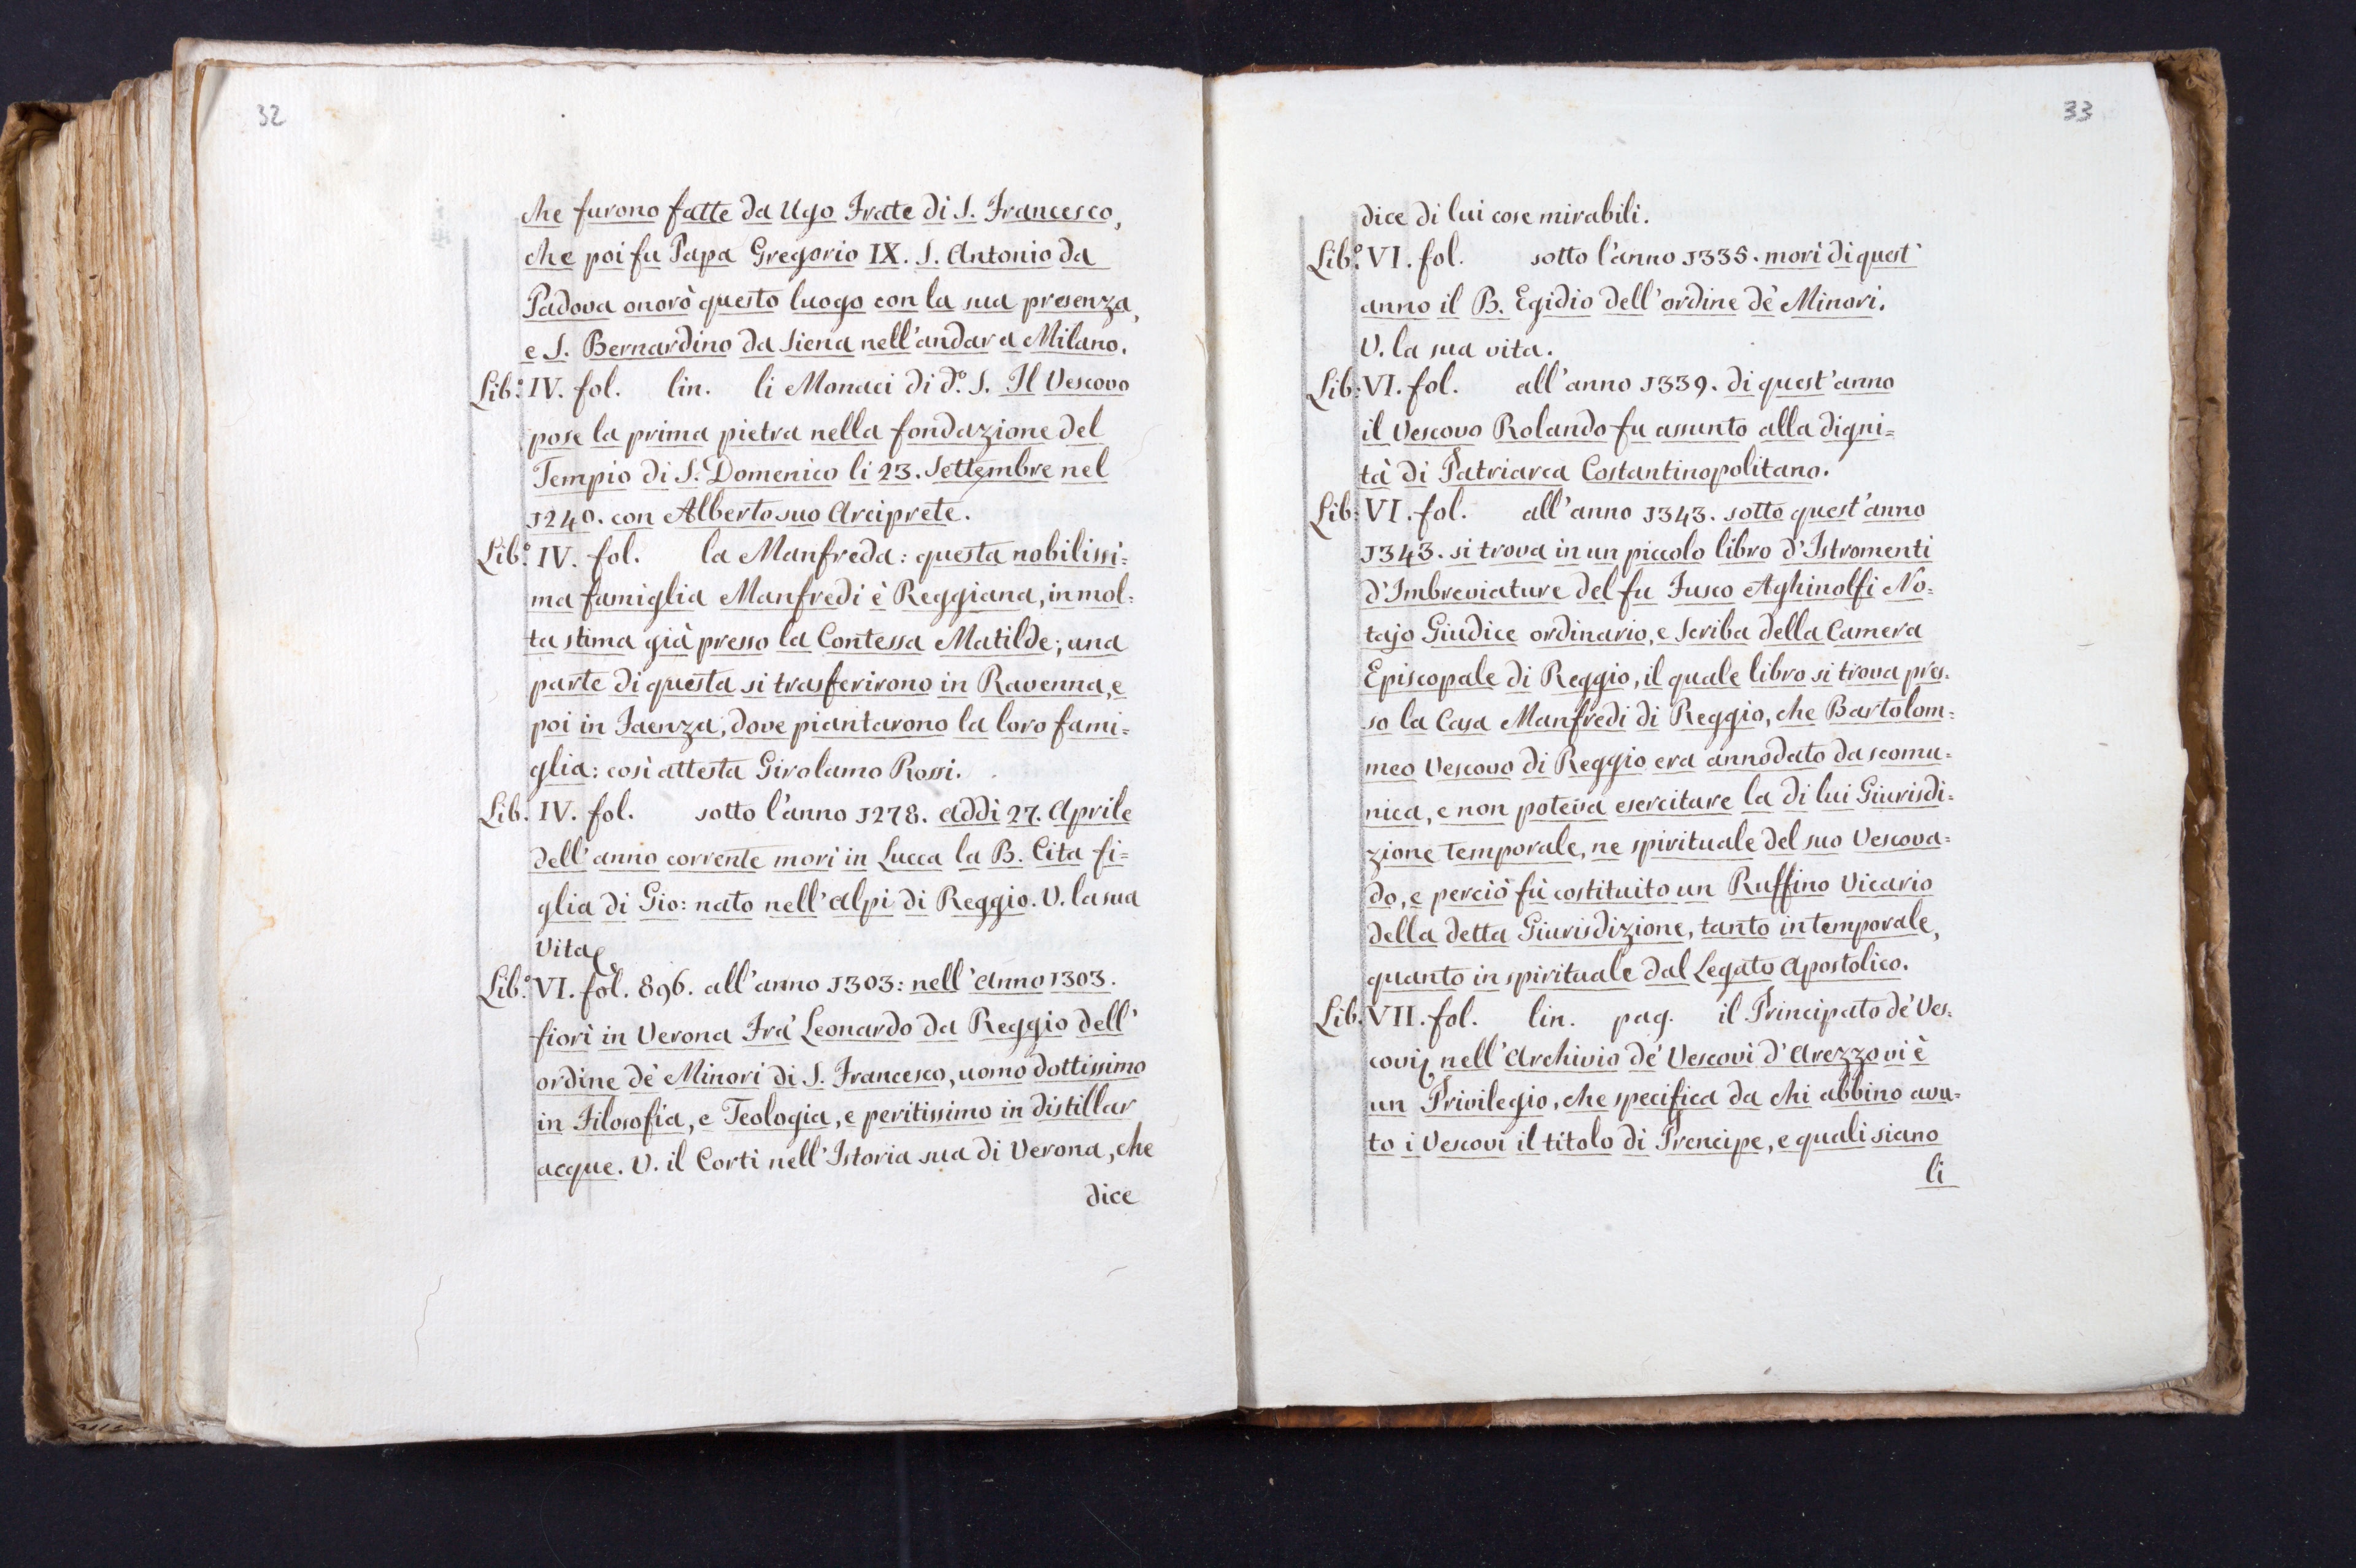 32
che furono fatte da Ugo Frate di S. Francesco,
che poi fu Papa Gregorio IX. S. Antonio da
Padova onorò questo luogo con la sua presenza,
e S. Bernardino da Siena nell'andar a Milano.
Lib.º IV. fol. lin. li Monaci di d.º S. Il Vescovo
pose la prima pietra nella fondazione del
Tempio di S. Domenico li 23. Settembre nel
1240. con Alberto suo Arciprete.
Lib.º IV. fol. la Manfreda: questa nobilissi=
ma famiglia Manfredi è Reggiana, in mol=
ta stima già presso la Contessa Matilde; una
parte di questa si trasferirono in Ravenna, e
poi in Faenza, dove piantarono la loro fami=
glia: così attesta Girolamo Rossi.
Lib. IV. fol. sotto l'anno 1278. addì 27. Aprile
dell'anno corrente morì in Lucca la B. Cita fi=
glia di Gio: nato nell'alpi di Reggio. V. la sua
Vita
Lib.º VI. fol. 896. all'anno 1303: nell'Anno 1303.
fiorì in Verona Frà Leonardo da Reggio dell'
ordine de' Minori di S. Francesco, uomo dottissimo
in Filosofia, e Teologia, e peritissimo in distillar
acque. V. il Corti nell'Istoria sua di Verona, che
dice
33
dice di lui cose mirabili.
Lib.º VI. fol. sotto l'anno 1335. morì di quest'
anno il B. Egidio dell'ordine de' Minori.
V. la sua vita.
Lib: VI. fol. all'anno 1339. di quest'anno
il Vescovo Rolando fu assunto alla digni=
tà di Patriarca Costantinopolitano.
Lib: VI. fol. all'anno 1343. sotto quest'anno
1343. si trova in un piccolo libro d'Istromenti
d'Imbreviature del fu Fusco Aghinolfi No=
tajo Giudice ordinario, e Scriba della Camera
Episcopale di Reggio, il quale libro si trova pres=
so la Casa Manfredi di Reggio, che Bartolom=
meo Vescovo di Reggio era annodato da scomu=
nica, e non poteva esercitare la di lui Giurisdi=
zione Temporale, ne spirituale del suo Vescova=
do, e perciò fù costituito un Ruffino Vicario
della detta Giurisdizione, tanto in temporale,
quanto in spirituale dal Legato Apostolico.
Lib. VII. fol. lin. pag. il Principato de' Ves=
covi nell'Archivio de' Vescovi d'Arezzo vi è
un Privilegio, che specifica da chi abbino avu=
to i Vescovi il titolo di Prencipe, e quali siano
li